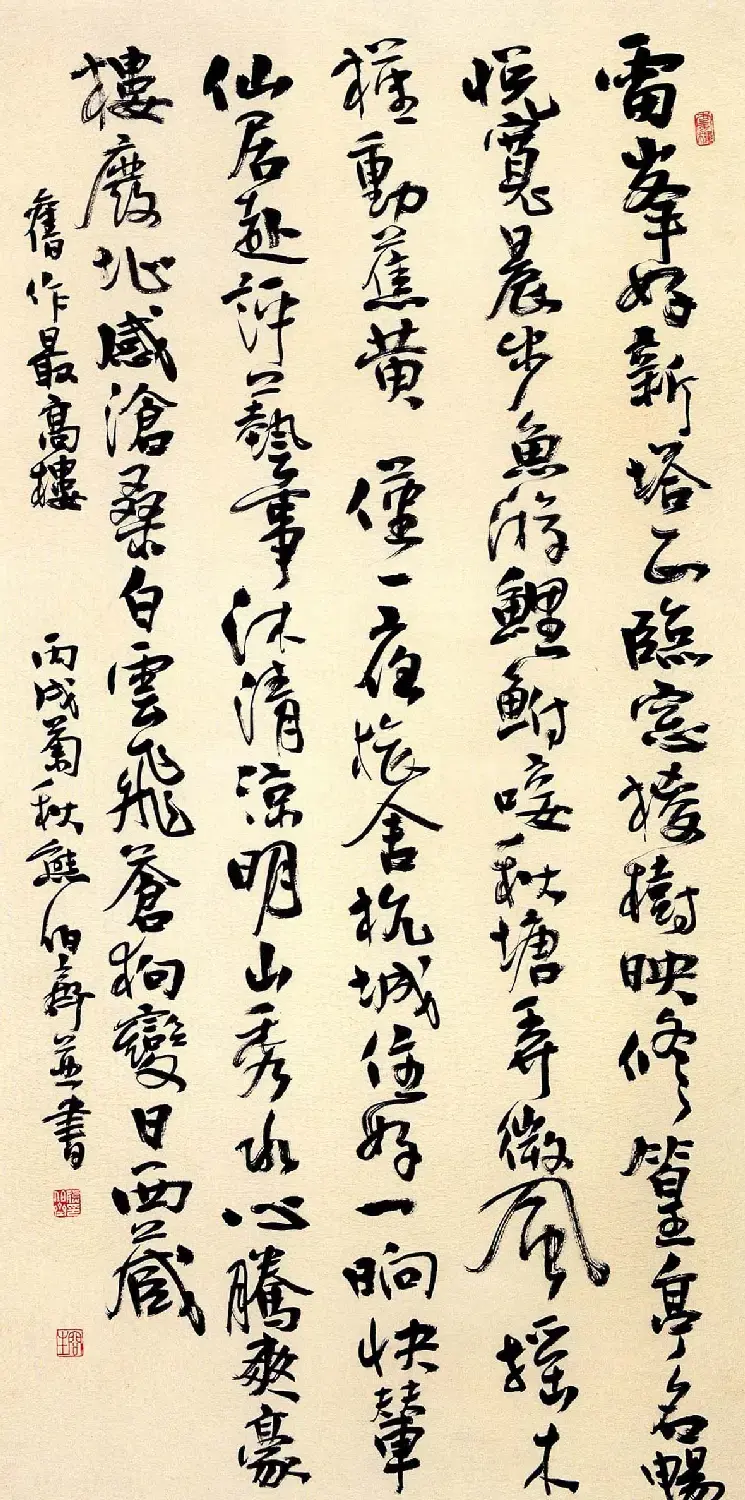 雷峯好新塔正臨窓樹映修篁亭名暢
悅寬晨步魚游鯉鮒唼秋塘弄微風搖木
槿動蕉黃 僅一夜旅舍杭城住好一晌快輦
仙居赴評藝事沐清涼明山秀水心騰爽豪
樓廢址感滄桑白雲飛蒼狗變日西藏
舊作最高樓 丙戌菊秋熊伯齊並書